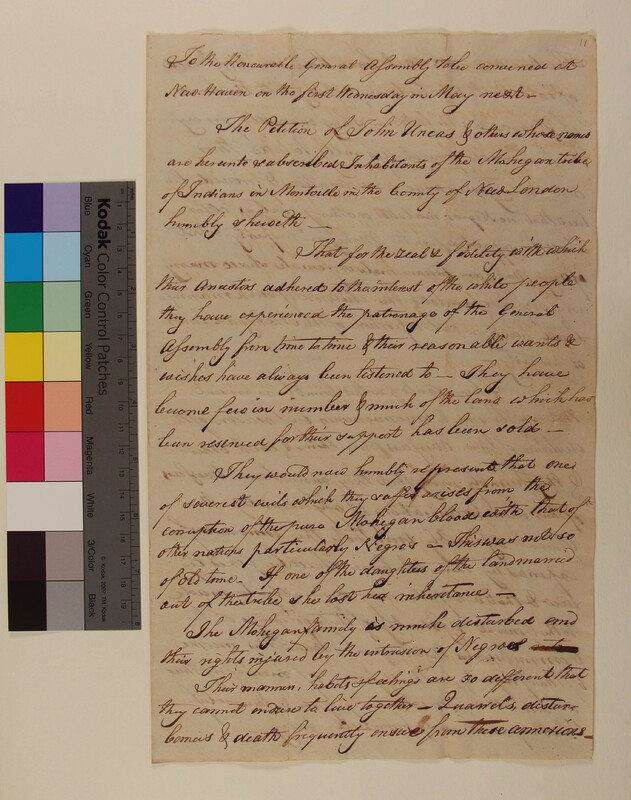 11
To the Honourable General Assembly to be convened at
New Haven on the first Wednesday in May next -
The Petition of John Uncas & others whose names
are hereunto subscribed Inhabitants of the Mohegan tribe
of Indians in Montville in the County of New London
humbly sheweth -
That for the zeal & fidelity with which
their Ancestors adhered to the interest of the white people
they have experienced the patronage of the General
Assembly from time to time & their reasonable wants &
wishes have always been listened to - They have
become few in number & much of the land which has
been reserved for their support has been sold -
They would now humbly represent that one
of severest evils which they suffer arises from the
corruption of the pure Mohegan blood with that of
other nations particularly Negros - This was not so
of old time - If one of the daughters of the land married
out of the tribe she lost her inheritance -
The Mohegan family is much disturbed and
their rights injured by the intrusion of Negroes
Their manners, habits & feelings are so different that
they cannot endure to live together - Quarrels, distur-
bances & death frequently ensue from these connexions -
Kodak Color Control Patches
Blue
Cyan
Green
Yellow
Red
Magenta
White
3/Color
Black